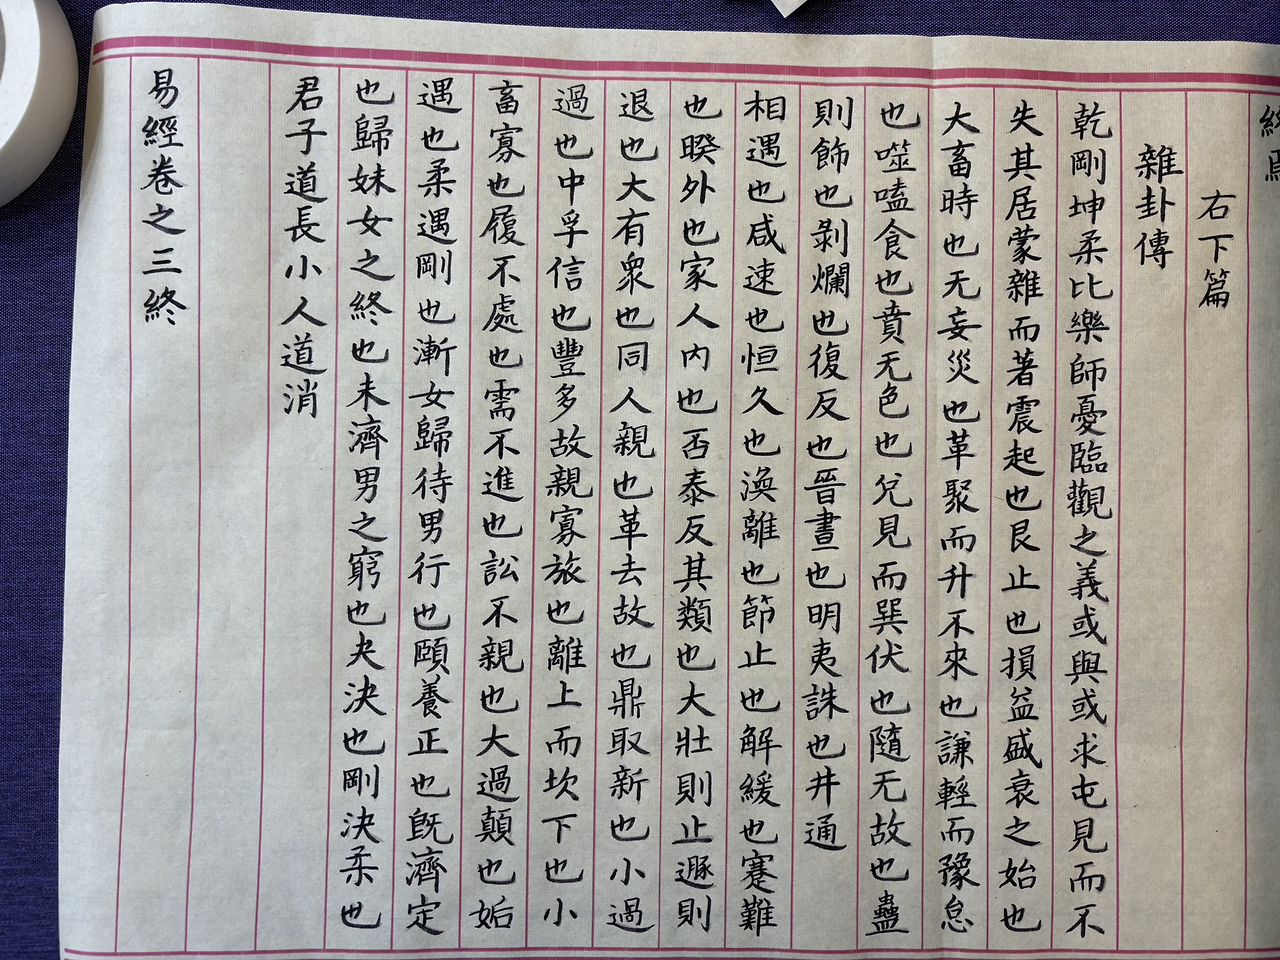 終焉
右下篇
雜卦傳
乾剛坤柔比樂師憂臨觀之義或與或求屯見而不
失其居蒙雜而著震起也艮止也損益盛衰之始也
大畜時也无妄災也革聚而升不來也謙輕而豫怠
也噬嗑食也賁无色也兌見而巽伏也隨无故也蠱
則飾也剝爛也復反也晉晝也明夷誅也井通
相遇也咸速也恒久也渙離也節止也解緩也蹇難
也睽外也家人內也否泰反其類也大壯則止遯則
退也大有眾也同人親也革去故也鼎取新也小過
過也中孚信也豐多故親寡旅也離上而坎下也小
畜寡也履不處也需不進也訟不親也大過顛也姤
遇也柔遇剛也漸女歸待男行也頤養正也既濟定
也歸妹女之終也未濟男之窮也夬決也剛決柔也
君子道長小人道消
易經卷之三終